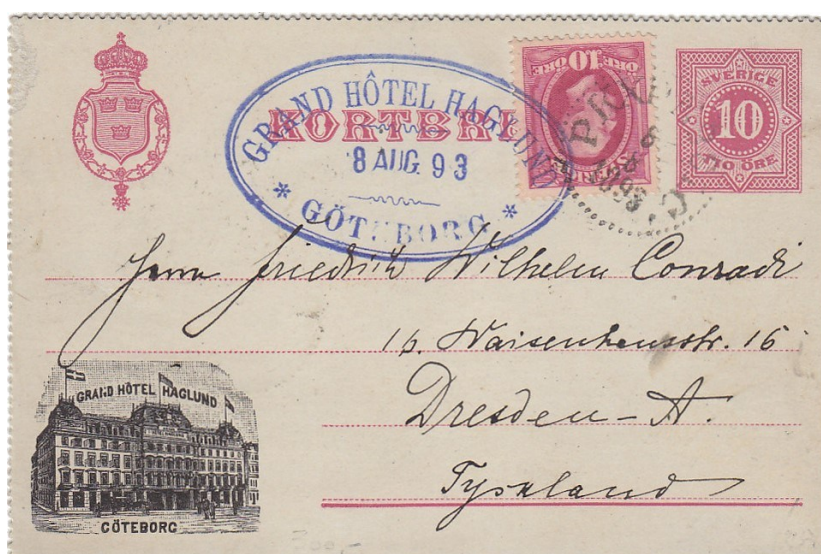 GRAND HÔTEL HAGLUND
KORTBREF
8 AUG. 93
* GÖTEBORG *
10
ÖRE ÖRE
SVERIGE
10
TIO ÖRE
1893
Herrn Friedrich Wilhelm Conradi
16. Waisenhausstr. 16
Dresden-A.
Tyskland
GRAND HÔTEL HAGLUND
GÖTEBORG
300,-